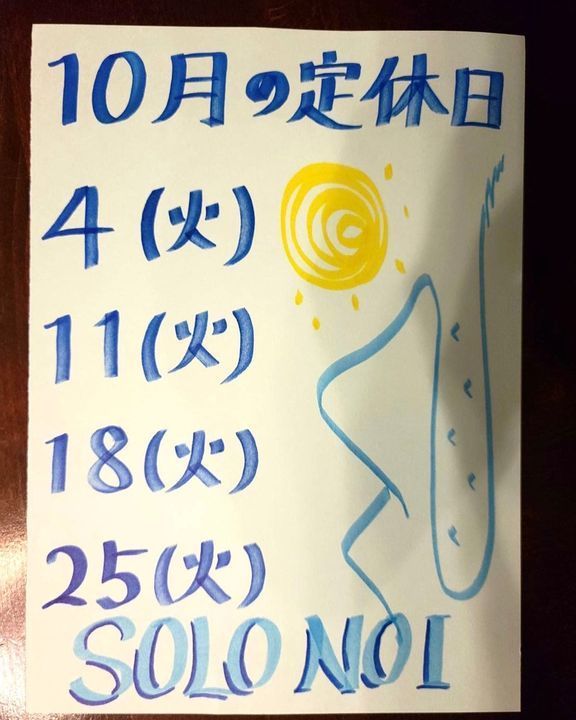 10月の定休日
4(火)
11(火)
18(火)
25(火)
SOLO NOI